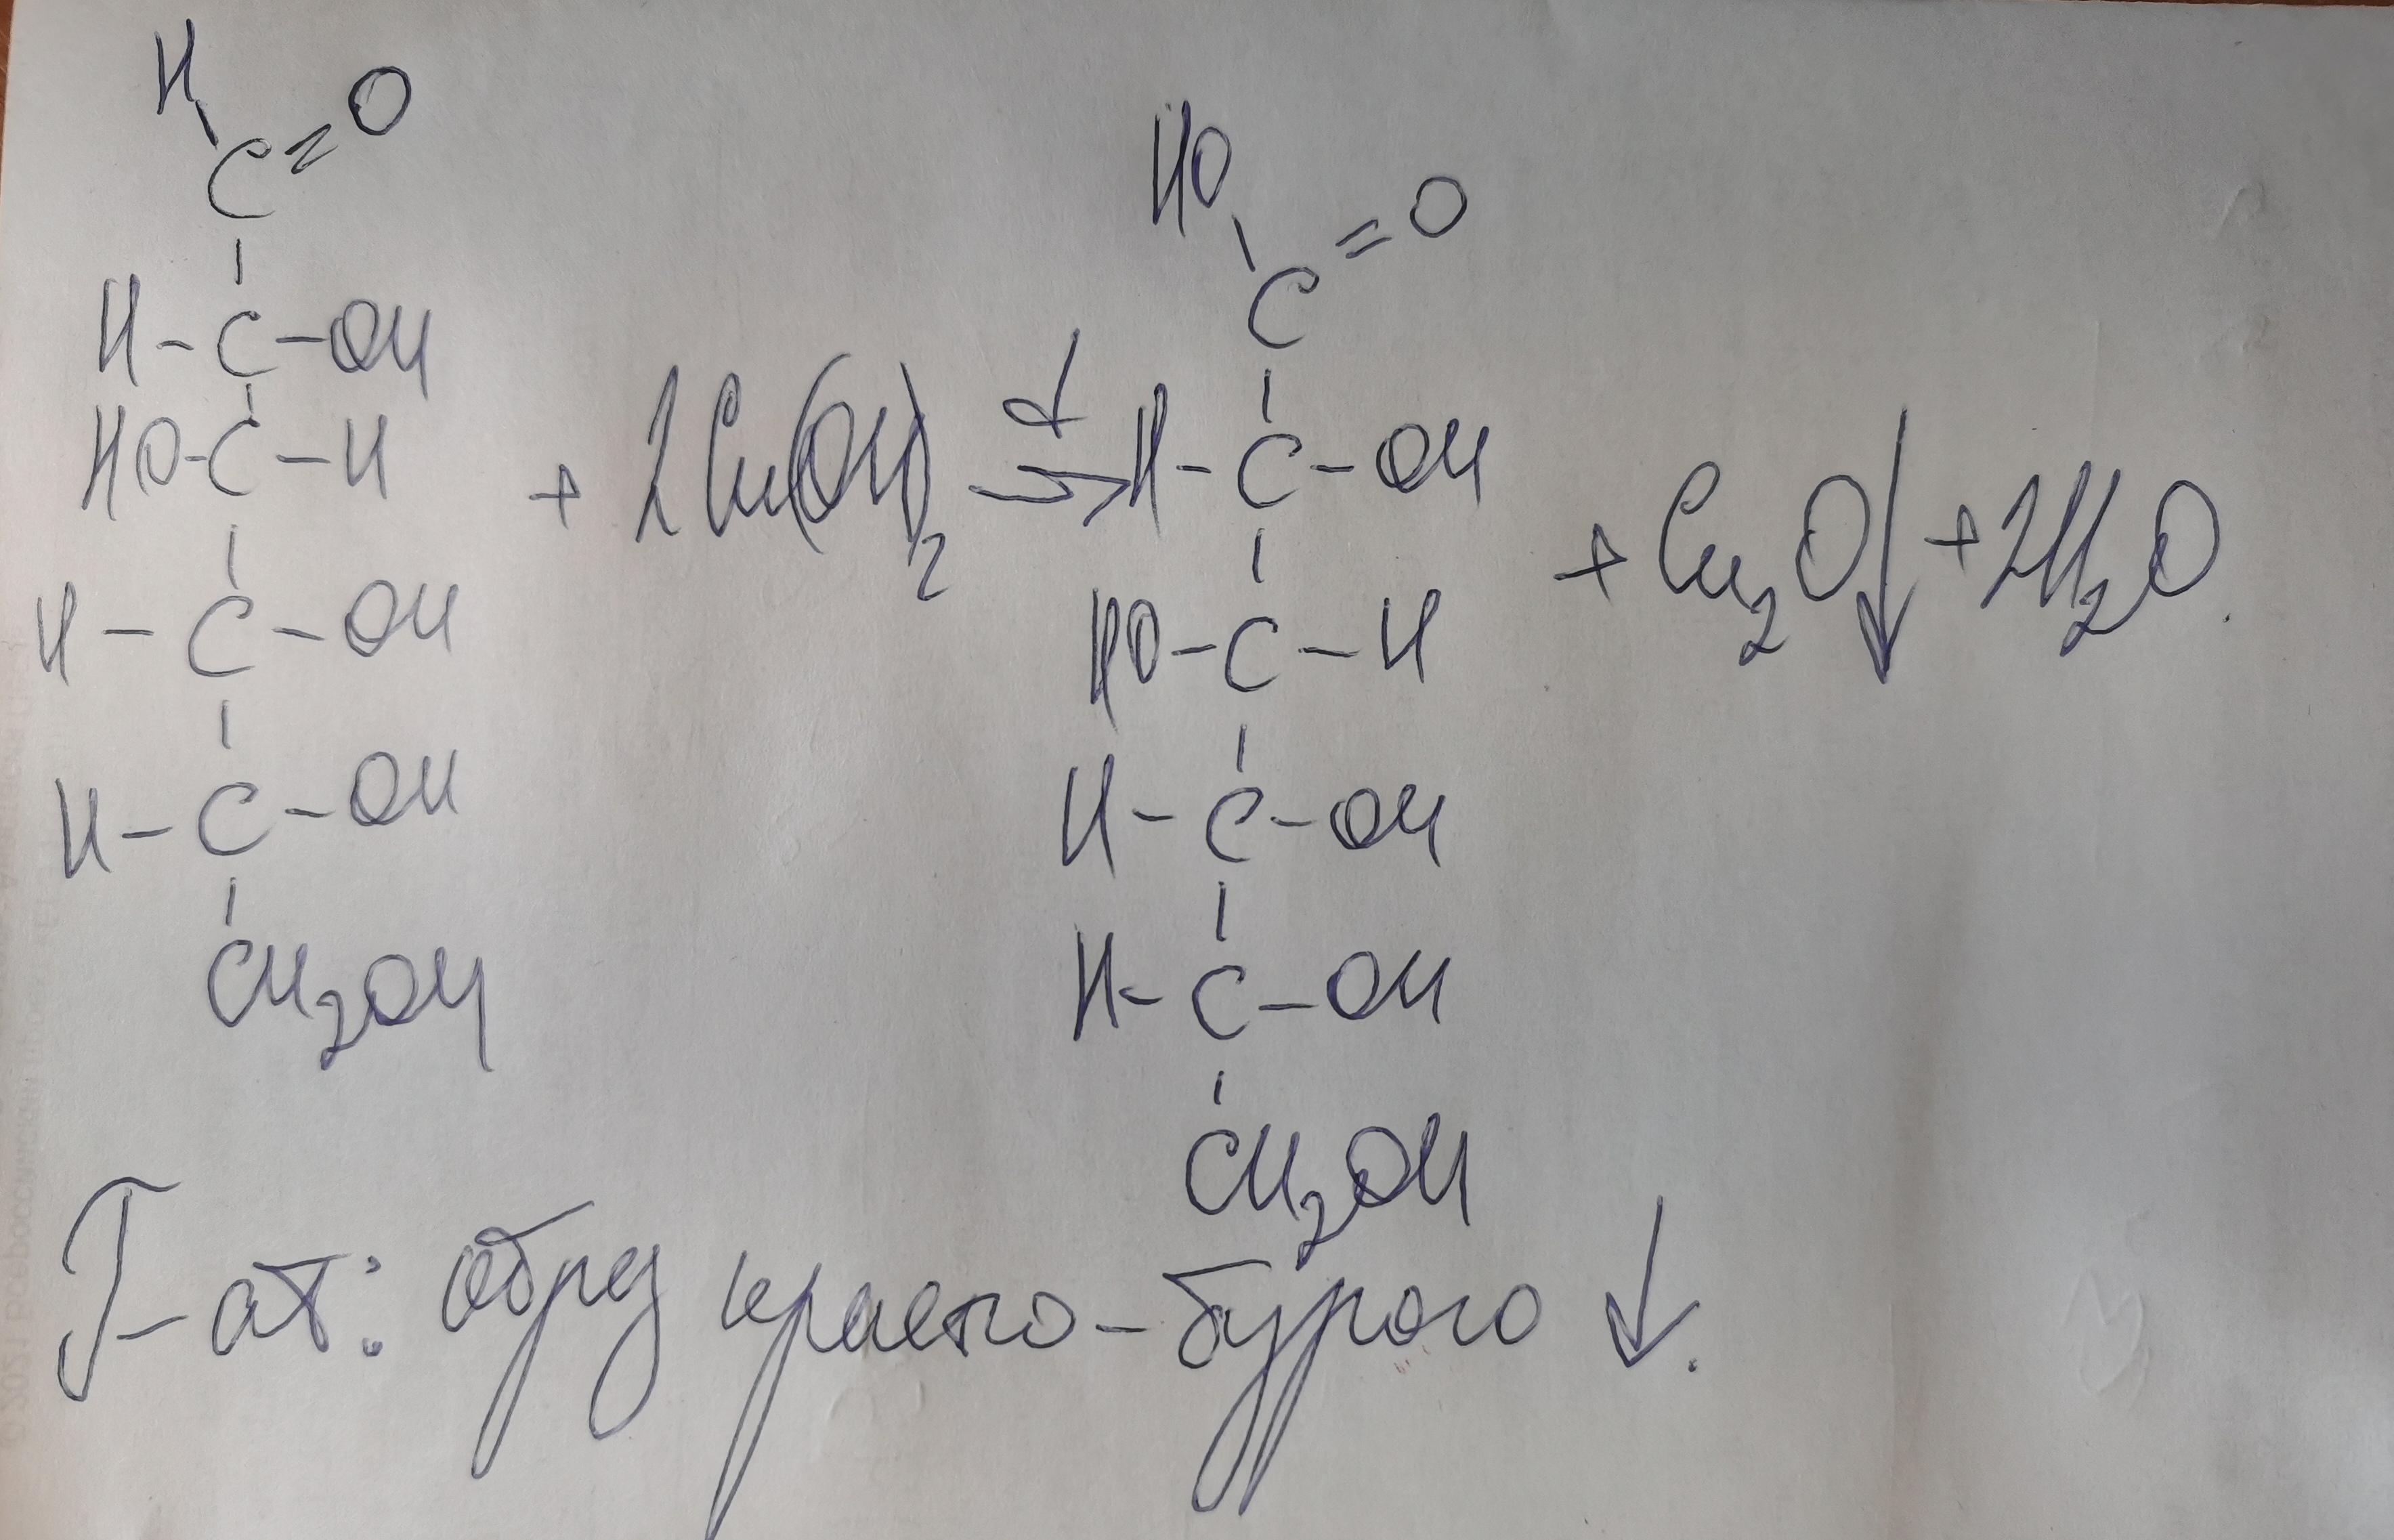 H
C=O
H-C-OH
HO-C-H
H-C-OH
H-C-OH
CH₂OH
+ 2Cu(OH)₂ t →
HO
C=O
H-C-OH
HO-C-H
H-C-OH
H-C-OH
CH₂OH
+ Cu₂O↓ + 2H₂O.
Р-ат: обрз красно-бурого ↓.